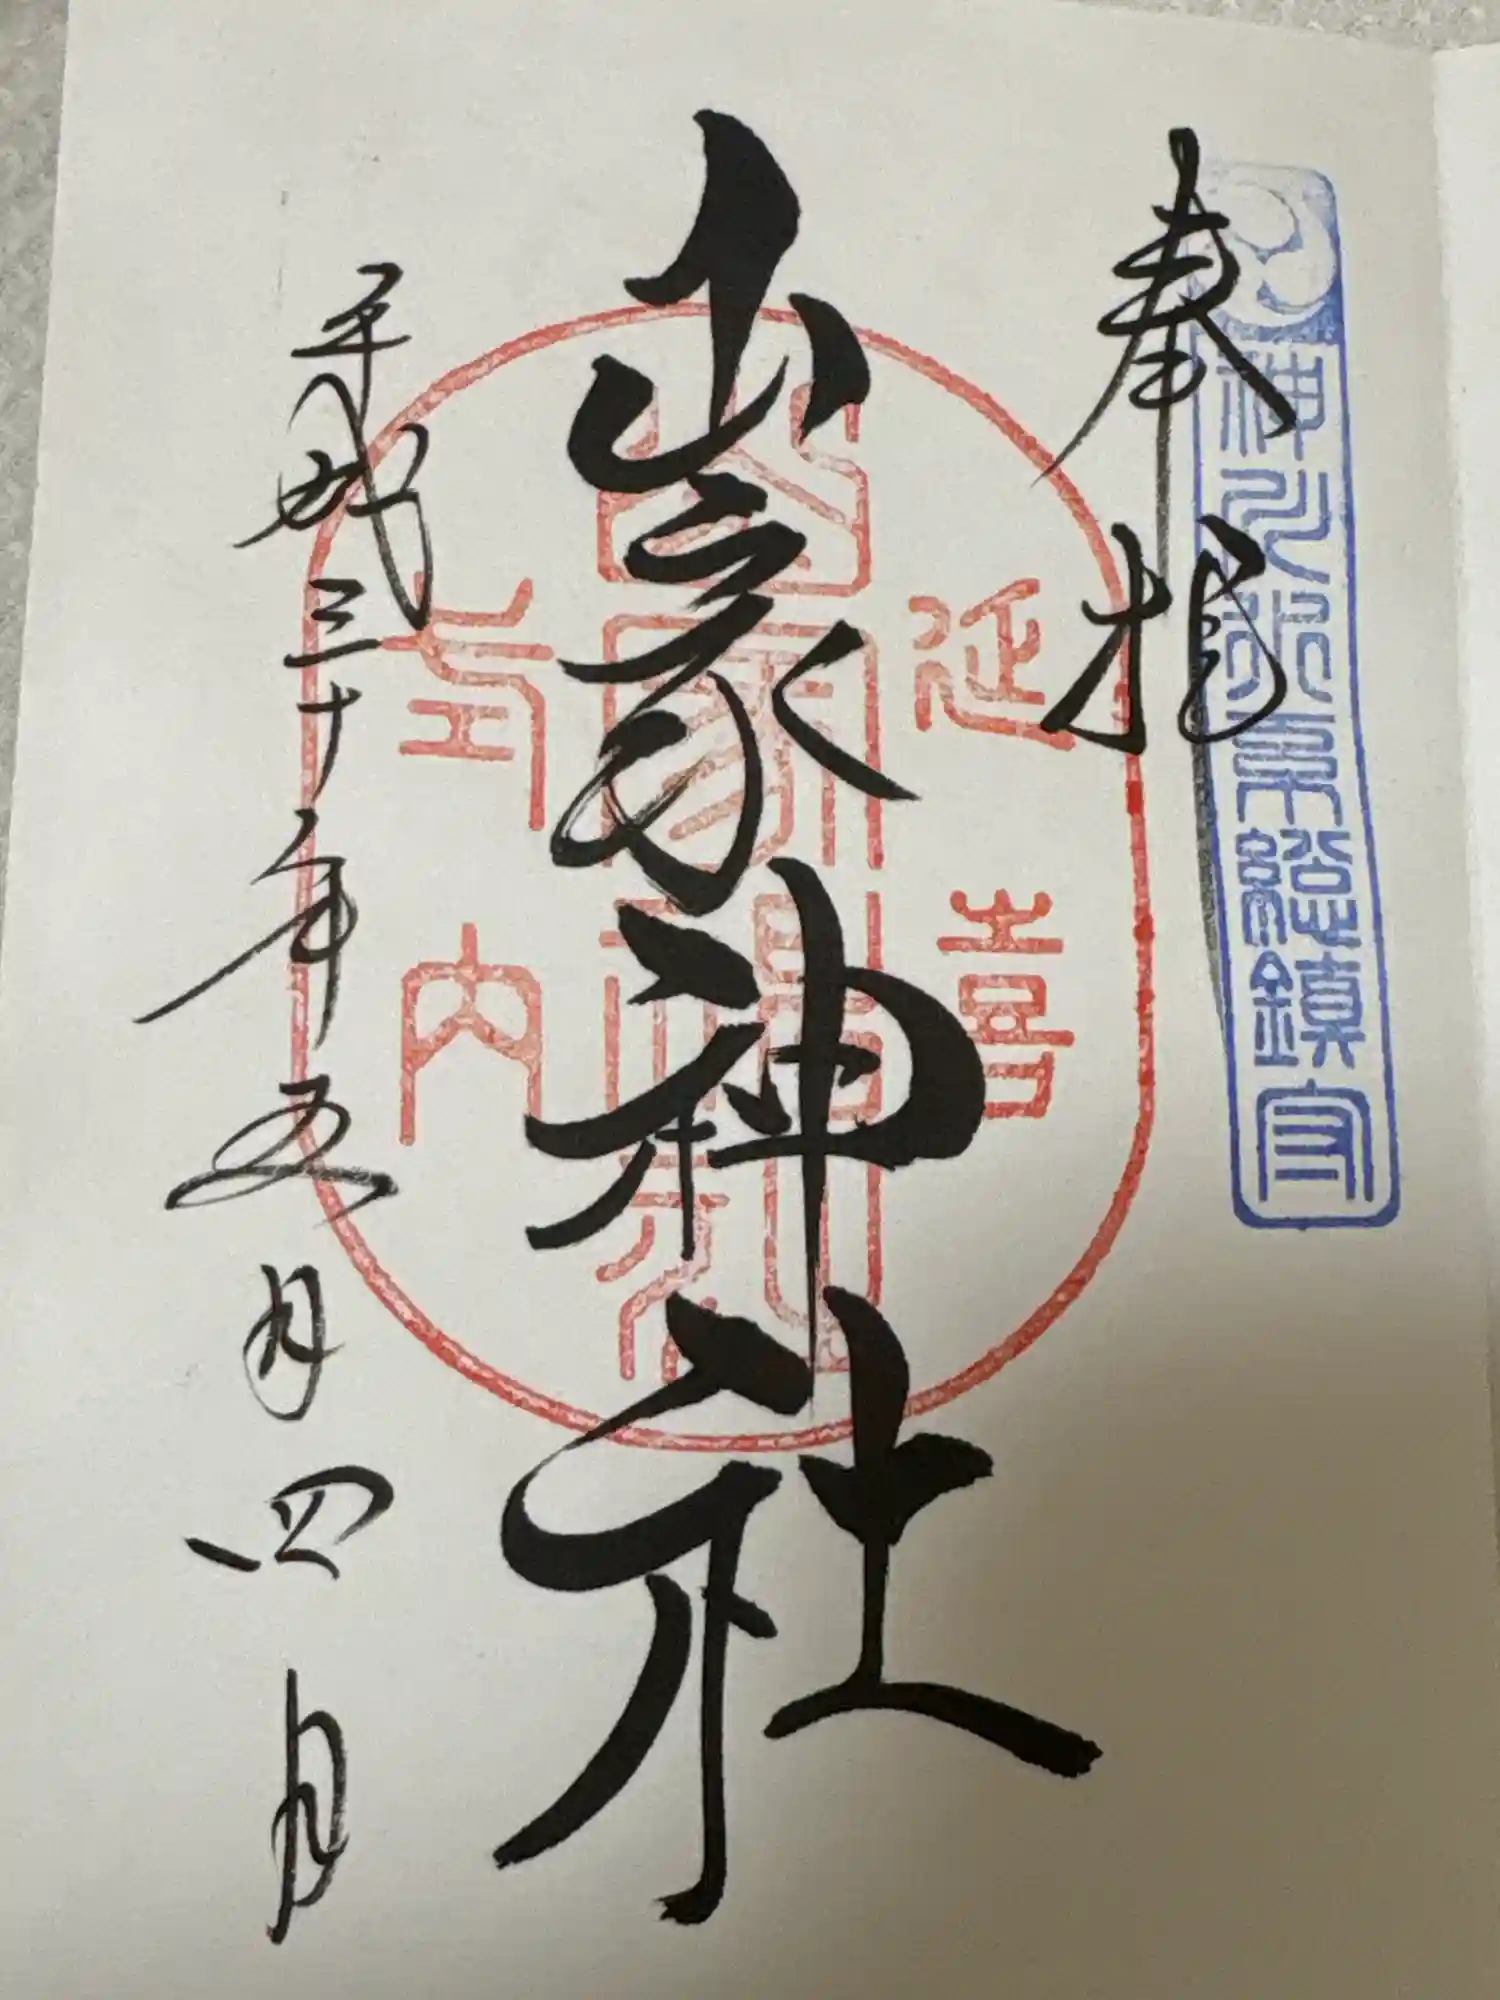 神川水系総鎮守
奉拝
山家神社
延喜
山家神社
式内
平成三十年五月四日